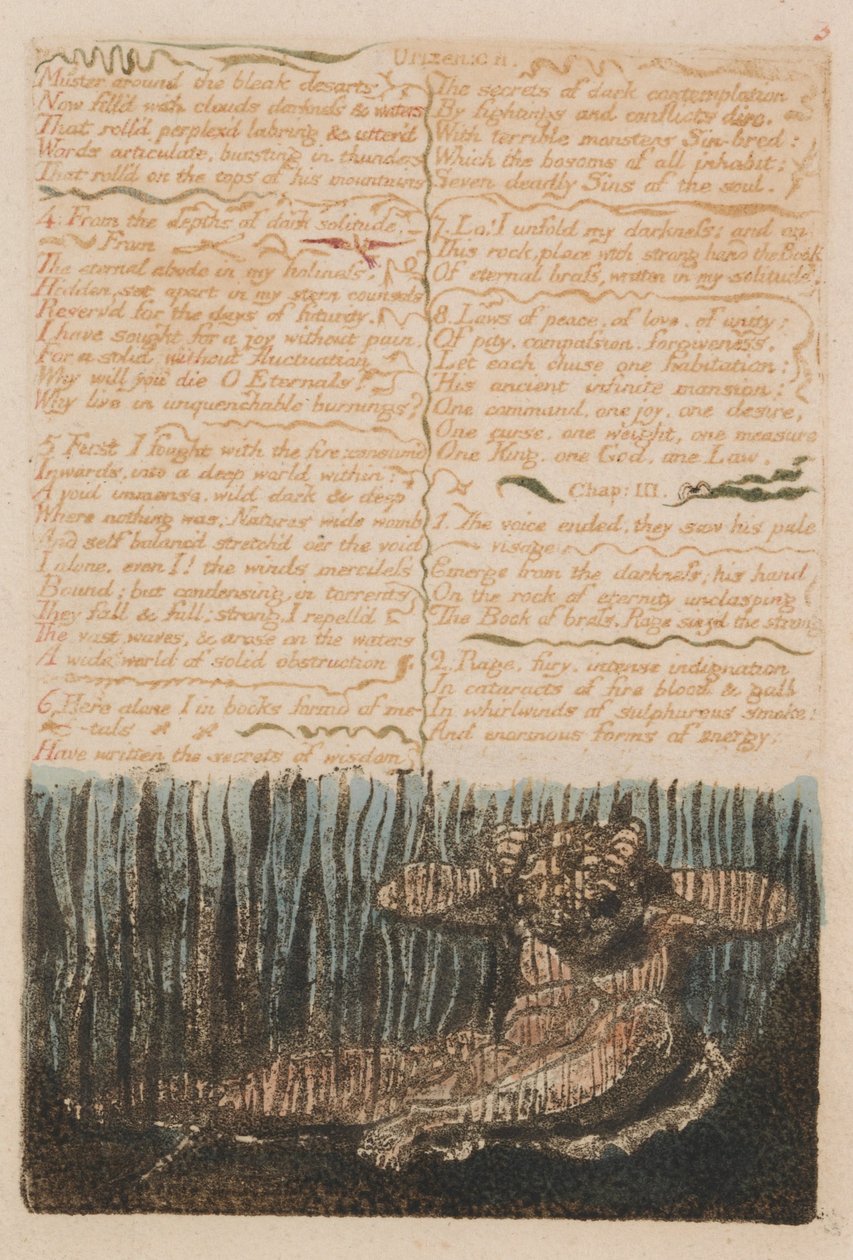 5
Urizen: C II.
Muster around the bleak desarts
Now fill'd with clouds darkness & waters
That roll'd perplex'd labring & utter'd
Words articulate, bursting in thunders
That roll'd on the tops of his mountains
4. From the depths of dark solitude.
From
The eternal abode in my holiness,
Hidden, set apart in my stern counsels
Reserv'd for the days of futurity.
I have sought for a joy without pain,
For a solid without fluctuation
Why will you die O Eternals?
Why live in unquenchable burnings?
5 First I fought with the fire; consum'd
Inwards, into a deep world within:
A void immense, wild dark & deep
Where nothing was; Natures wide womb
And self balanc'd stretch'd o'er the void
I alone, even I! the winds merciless
Bound; but condensing, in torrents
They fall & fall; strong, I repell'd
The vast waves, & arose on the waters
A wide world of solid obstruction
6. Here alone I in books form'd of me-
-tals
Have written the secrets of wisdom
The secrets of dark contemplation
By fightings and conflicts dire,
With terrible monsters Sin-bred:
Which the bosoms of all inhabit;
Seven deadly Sins of the soul.
7. Lo! I unfold my darkness: and on
This rock, place with strong hand the Book
Of eternal brass, written in my solitude.
8. Laws of peace, of love, of unity;
Of pity, compassion, forgiveness.
Let each chuse one habitation:
His ancient infinite mansion:
One command, one joy, one desire,
One curse, one weight, one measure
One King, one God, one Law.
Chap: III.
1. The voice ended, they saw his pale
visage
Emerge from the darkness; his hand
On the rock of eternity unclasping
The Book of brass. Rage siez'd the strong
2. Rage, fury, intense indignation
In cataracts of fire blood & gall
In whirlwinds of sulphurous smoke:
And enormous forms of energy;